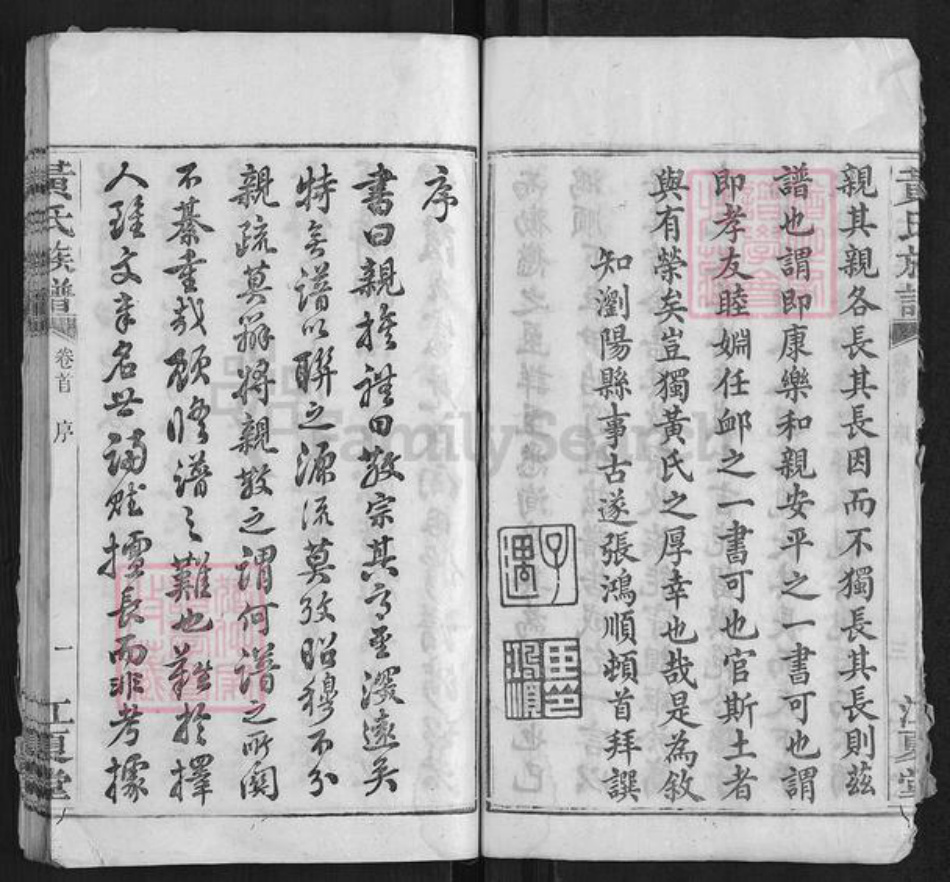 親其親各長其長因而不獨長其長則茲
譜也謂即康樂和親安平之一書可也謂
即孝友睦婣任卹之一書可也官斯土者
與有榮矣豈獨黃氏之厚幸也哉是為敘
知瀏陽縣事古遂張鴻順頓首拜譔
序
書曰親族禮曰敬宗其高重深遠矣
特無譜以聯之源流莫攷昭穆不分
親疏莫辨將親敬之謂何譜之所關
不綦重哉顧修譜之難也難於擇
人雖文章名世誦賦擅長而非考據
黃氏族譜
卷首
序
一
江夏堂
FamilySearch